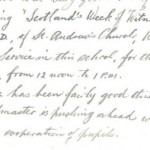 ing "Scotland's Week of Witn
D, of St. Andrew's Church, K
Service in this school, for th
from 12 noon to 1 P.M.
has been fairly good thr
master is pushing ahead w
cooperation of pupils.